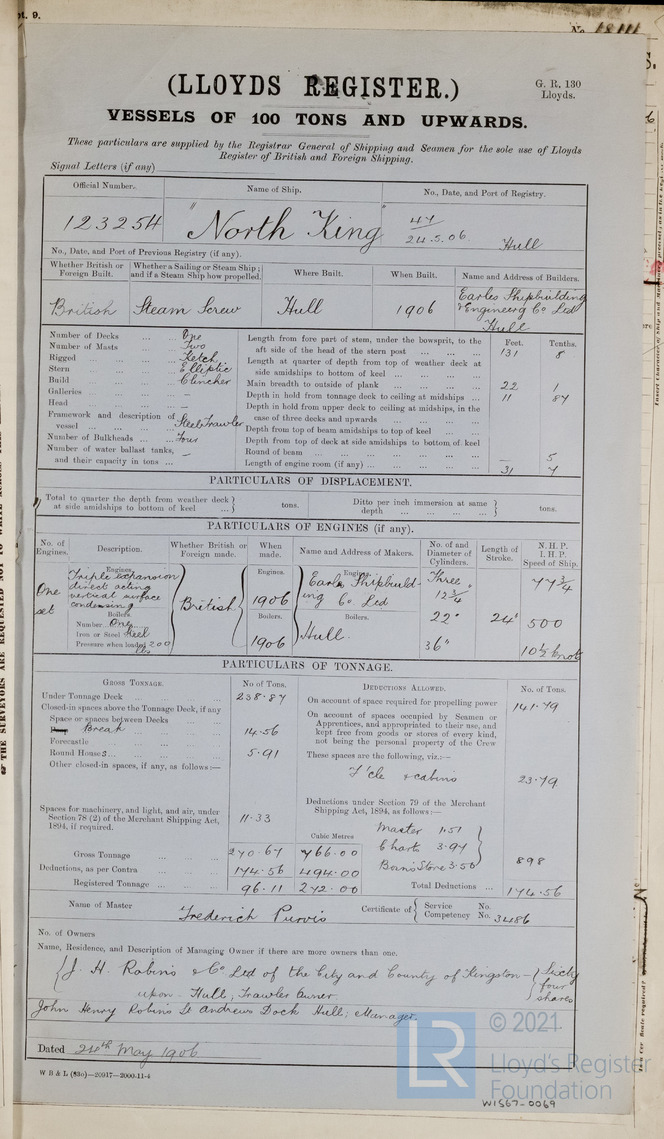 (LLOYDS REGISTER.)
G. R. 130
Lloyds.
VESSELS OF 100 TONS AND UPWARDS.
These particulars are supplied by the Registrar General of Shipping and Seamen for the sole use of Lloyds
Register of British and Foreign Shipping.
Signal Letters (if any)
Official Number. Name of Ship. No., Date, and Port of Registry.
123254 "North King" 47/24.5.06. Hull
No., Date, and Port of Previous Registry (if any).
Whether British or Foreign Built. Whether a Sailing or Steam Ship; and if a Steam Ship how propelled. Where Built. When Built. Name and Address of Builders.
British Steam Screw Hull 1906 Earles Shipbuilding & Engineerg Co Led Hull
Number of Decks ... One
Number of Masts ... Two
Rigged ... Ketch
Stern ... Elliptic
Build ... Clincher
Galleries ... —
Head ... —
Framework and description of vessel ... Steel Trawler
Number of Bulkheads ... Four
Number of water ballast tanks, and their capacity in tons ... —
Feet. Tenths.
Length from fore part of stem, under the bowsprit, to the aft side of the head of the stern post ... 131 8
Length at quarter of depth from top of weather deck at side amidships to bottom of keel ...
Main breadth to outside of plank ... 22 1
Depth in hold from tonnage deck to ceiling at midships ... 11 87
Depth in hold from upper deck to ceiling at midships, in the case of three decks and upwards ...
Depth from top of beam amidships to top of keel ...
Depth from top of deck at side amidships to bottom of keel
Round of beam ... — 5
Length of engine room (if any) ... 31 7
PARTICULARS OF DISPLACEMENT.
Total to quarter the depth from weather deck at side amidships to bottom of keel ... tons. Ditto per inch immersion at same depth ... tons.
PARTICULARS OF ENGINES (if any).
No. of Engines. Description. Whether British or Foreign made. When made. Name and Address of Makers. No. of and Diameter of Cylinders. Length of Stroke. N.H.P. I.H.P. Speed of Ship.
One set
Engines.
Triple expansion
direct acting
vertical surface
condensing
Boilers.
Number One
Iron or Steel Steel
Pressure when loaded 200 lbs
British
Engines.
1906
Boilers.
1906
Engines.
Earles Shipbuild-
ing Co Led
Boilers.
Hull
Three
12¾"
22"
36"
24"
77¾
500
10½ knots
PARTICULARS OF TONNAGE.
GROSS TONNAGE. No. of Tons. DEDUCTIONS ALLOWED. No. of Tons.
Under Tonnage Deck ... 238.87
Closed-in spaces above the Tonnage Deck, if any
Space or spaces between Decks ...
Break 14.56
Forecastle ...
Round Houses ... 5.91
Other closed-in spaces, if any, as follows:—
Spaces for machinery, and light, and air, under Section 78 (2) of the Merchant Shipping Act, 1894, if required. 11.33
Cubic Metres
Gross Tonnage ... 270.67 766.00
Deductions, as per Contra ... 174.56 494.00
Registered Tonnage ... 96.11 272.00
On account of space required for propelling power 141.79
On account of spaces occupied by Seamen or Apprentices, and appropriated to their use, and kept free from goods or stores of every kind, not being the personal property of the Crew
These spaces are the following, viz.:—
F'cle & cabins 23.79
Deductions under Section 79 of the Merchant Shipping Act, 1894, as follows:—
Master 1.51
Chart 3.97
Bosns Store 3.50
898
Total Deductions ... 174.56
Name of Master Frederick Purvis Certificate of Service Competency No. No. 3486
No. of Owners
Name, Residence, and Description of Managing Owner if there are more owners than one.
J. H. Robins & Co Led of the City and County of Kingston- Sixty
upon - Hull, Trawler Owner four
shares
John Henry Robins St Andrews Dock Hull; Manager.
Dated 24th May 1906
W B & L (83o)—20917—2000-11-4
LR
© 2021
Lloyd's Register
Foundation
W1567-0069